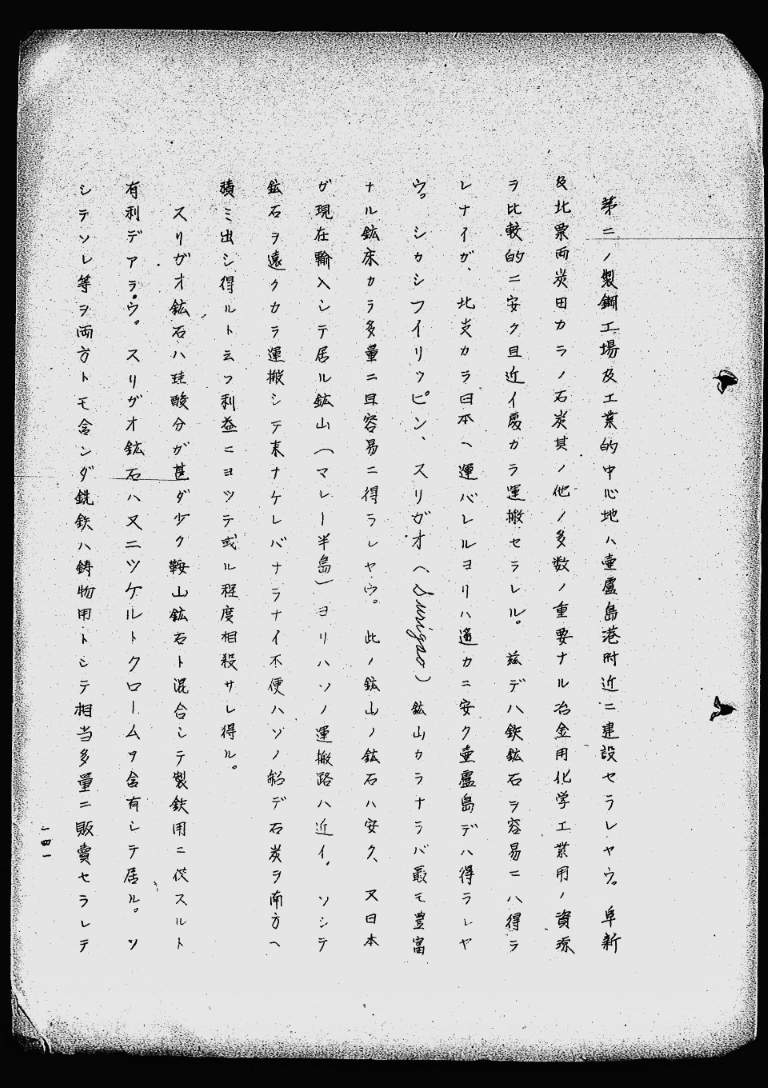 第二ノ製鋼工場及工業的中心地ハ壷盧島港附近ニ建設セラレヤウ。阜新
及北票両炭田カラノ石炭其ノ他ノ多数ノ重要ナル冶金用化学工業用ノ資源
ヲ比較的ニ安ク且近イ慶カラ運搬セラレル。茲デハ鉄鉱石ヲ容易ニハ得ラ
レナイガ、北支カラ日本ヘ運バレルヨリハ遙カニ安ク壷盧島デハ得ラレヤ
ウ。シカシフイリツピン、スリガオ(Surigao)鉱山カラナラバ最モ豊富
ナル鉱床カラ多量ニ且容易ニ得ラレヤウ。此ノ鉱山ノ鉱石ハ安ク、又日本
ガ現在輸入シテ居ル鉱山(マレー半島)ヨリハソノ運搬路ハ近イ。ソシテ
鉱石ヲ遠クカラ運搬シテ来ナケレバナラナイ不便ハソノ船デ石炭ヲ南方ヘ
積ミ出シ得ルト云フ利益ニヨツテ或ル程度相殺サレ得ル。
スリガオ鉱石ハ珪酸分ガ甚ダ少ク鞍山鉱石ト混合シテ製鉄用ニ供スルト
有利デアラウ。スリガオ鉱石ハ又ニツケルトクロームヲ含有シテ居ル。ソ
シテソレ等ヲ両方トモ含ンダ銑鉄ハ鋳物用トシテ相当多量ニ販賣セラレテ
一四一